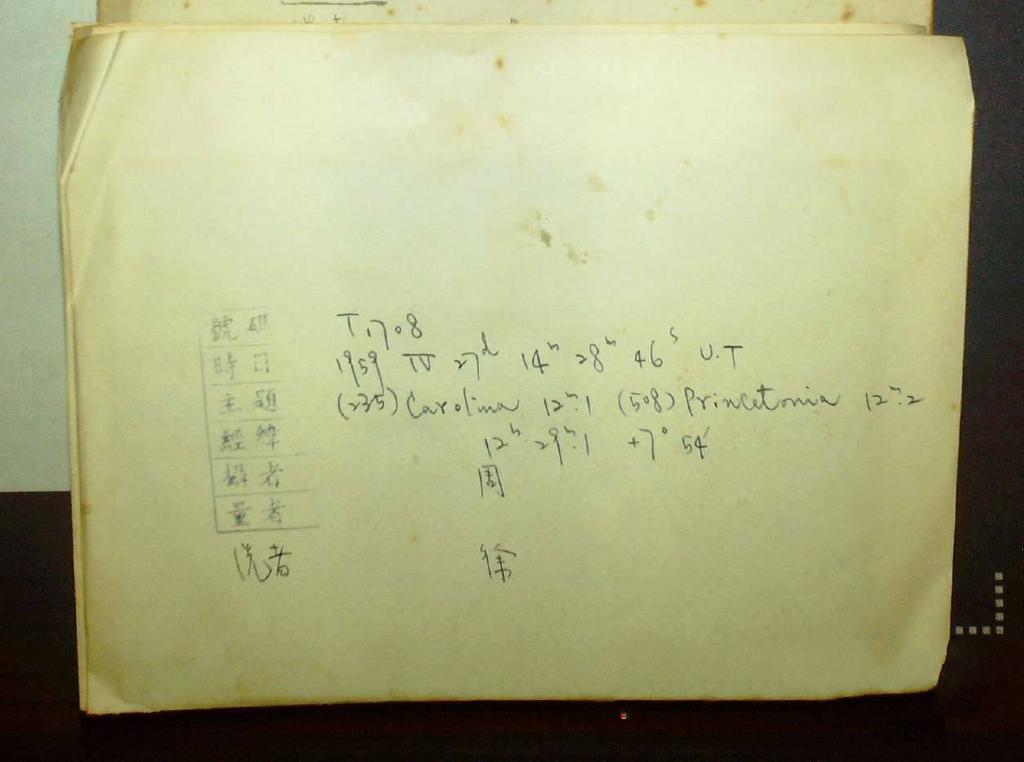 號碼 T.1708
時日 1959 IV 27d 14h 28m 46s U.T
主題 (235) Carolina 12m.1 (508) Princetonia 12m.2
經緯 12h 29m.1 +7° 54'
攝者 周
量者
洗者 徐